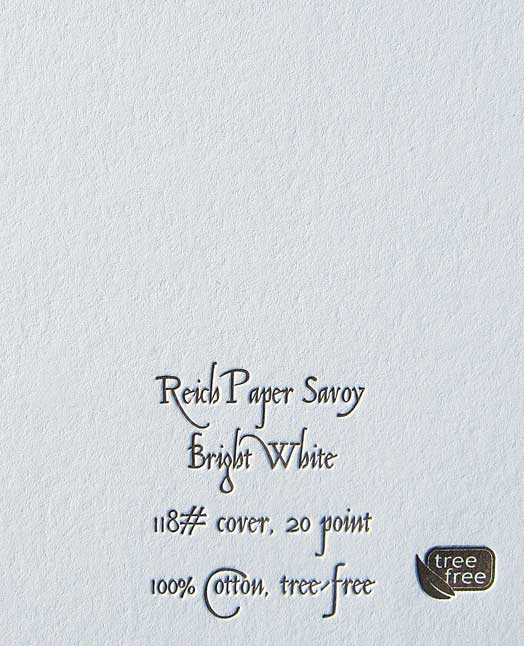 Reich Paper Savoy
Bright White
118# cover, 20 point
100% Cotton, tree-free
tree
free